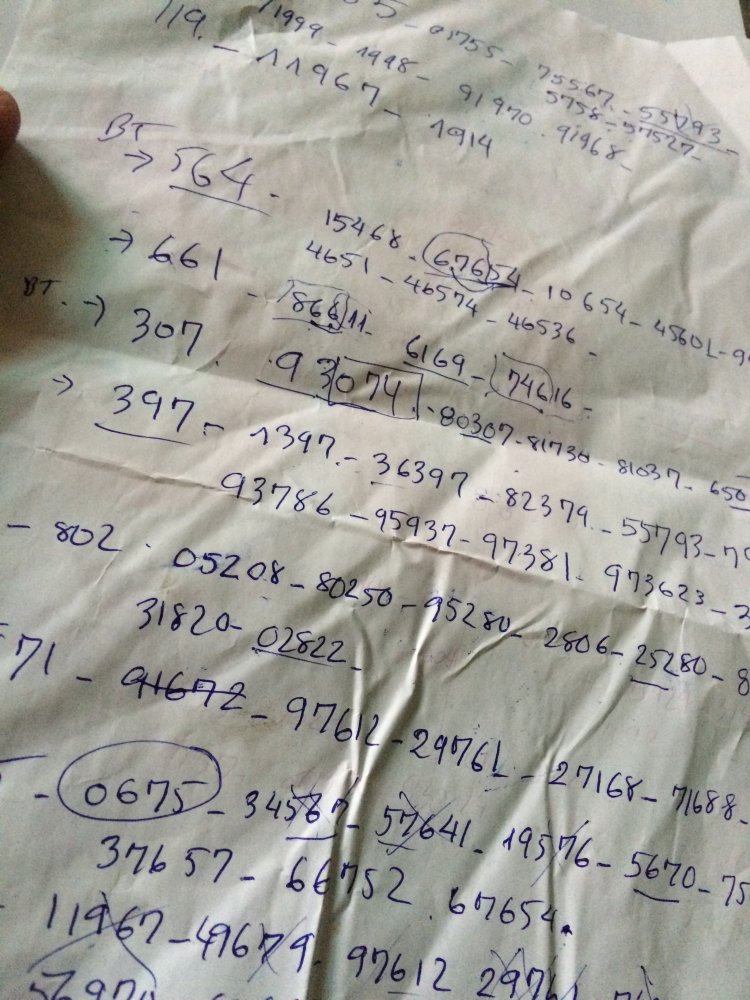 119. - 1999 - 1998 - 91970 . 91968 -
- 11967 - 1914
01755 - 75567 - 55793 -
5758 - 57527 -
BT
→ 564 - 15468 - 67654 - 10654 - 45601 - 9
4651 - 46574 - 46536 -
→ 661 - 86611 - 6169 - 74616 -
BT. → 307 . 93074 . 80307 - 81730 - 81037 - 650
→ 397 - 1397 - 36397 - 82379 - 55793 - 7
93786 - 95937 - 97381 - 973623 - 3
- 802 . 05208 - 80250 - 95280 - 2806 - 25280 - 8
31820 - 02822 -
71 - 91672 - 97612 - 29761 - 27168 - 71688 -
- 0675 - 34567 - 57641 - 19576 - 5670 - 75
37657 - 66752 . 67654 .
11967 - 49679 . 97612 29761